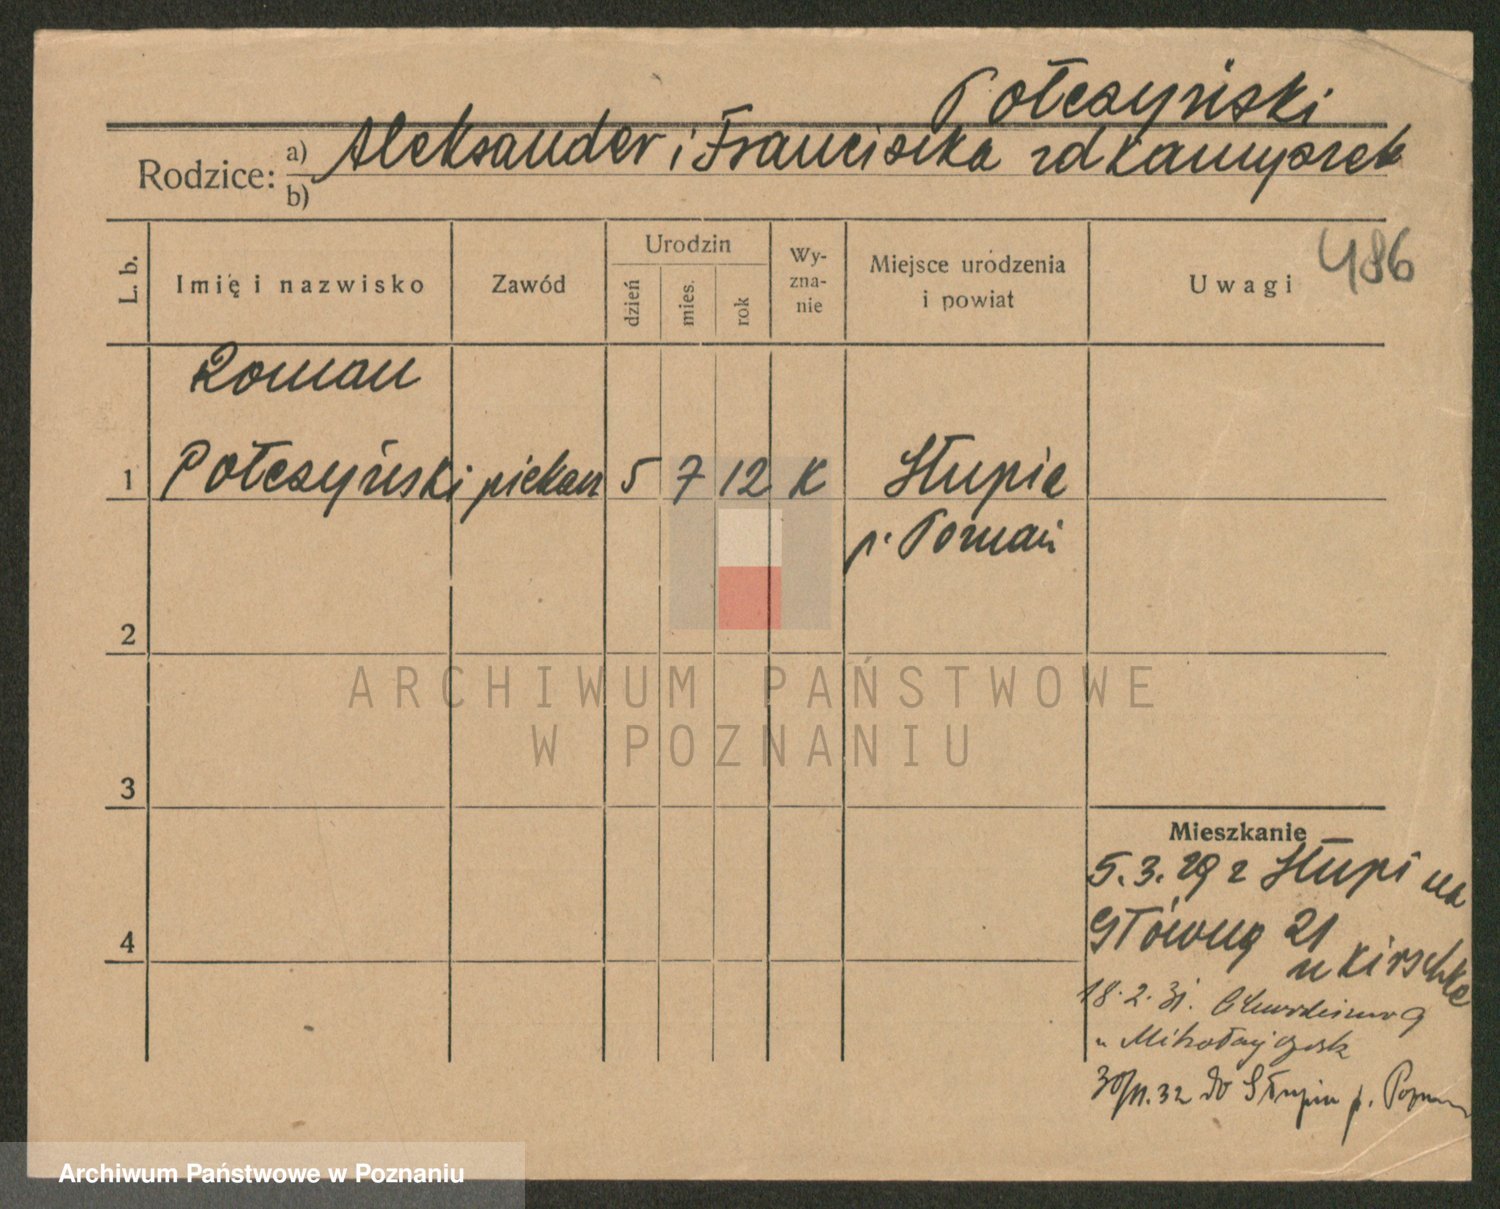 Połczyński
Rodzice: a) Aleksander i Franciszka zd Kamyszek
b)
L. b.
Imię i nazwisko
Zawód
Urodzin
dzień
mies.
rok
Wy-
zna-
nie
Miejsce urodzenia
i powiat
Uwagi
486
Roman
1 Połczyński piekarz 5 7 12 K Słupia
p. Poznań
2
3
4
ARCHIWUM PAŃSTWOWE
W POZNANIU
Mieszkanie
5.3.29 z Słupi na
Główną 21
u Kirschke
18.2.31. 9
u Mikołajczak
30/11.32 do Słupia p. Poznań
Archiwum Państwowe w Poznaniu